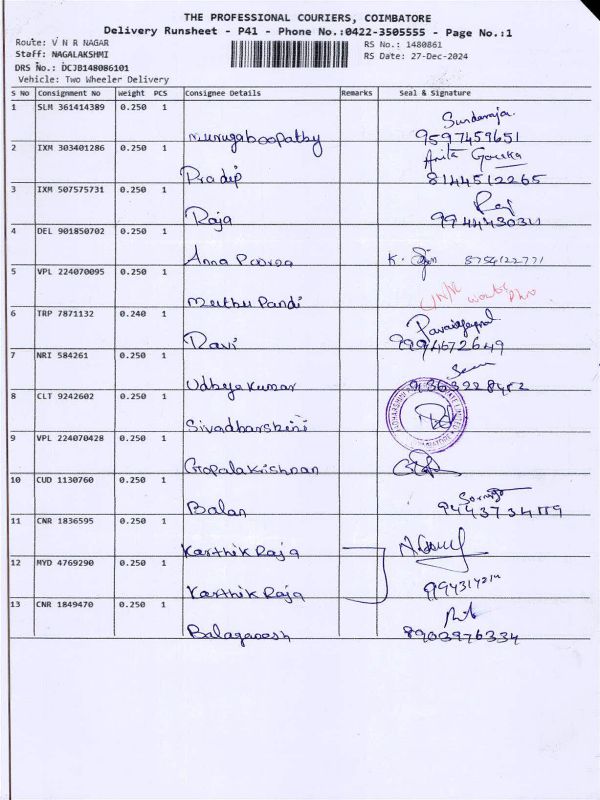 THE PROFESSIONAL COURIERS, COIMBATORE
Delivery Runsheet - P41 - Phone No.:0422-3505555 - Page No.:1
Route: V N R NAGAR
RS No.: 1480861
Staff: NAGALAKSHMI
RS Date: 27-Dec-2024
DRS No.: DCJB148086101
Vehicle: Two Wheeler Delivery
S No Consignment No Weight PCS Consignee Details Remarks Seal & Signature
1 SLM 361414389 0.250 1
Sundaraja
Murugaboopathy 9597459651
2 IXM 303401286 0.250 1
Anita
Pradip 8144512265
3 IXM 507575731 0.250 1
Raj
Raja 9944430311
4 DEL 901850702 0.250 1
Anna Poorna K. 8754122771
5 VPL 224070095 0.250 1
Muthu Pandi
6 TRP 7871132 0.240 1
Ravi 9994672649
7 NRI 584261 0.250 1
Udhya kumar 9363228482
8 CLT 9242602 0.250 1
Sivadharshini
9 VPL 224070428 0.250 1
Gopalakrishnan
10 CUD 1130760 0.250 1
Balan
11 CNR 1836595 0.250 1
Karthik Raja
12 MYD 4769290 0.250 1
Karthik Raja
13 CNR 1849470 0.250 1
Balaganesh 8903976334